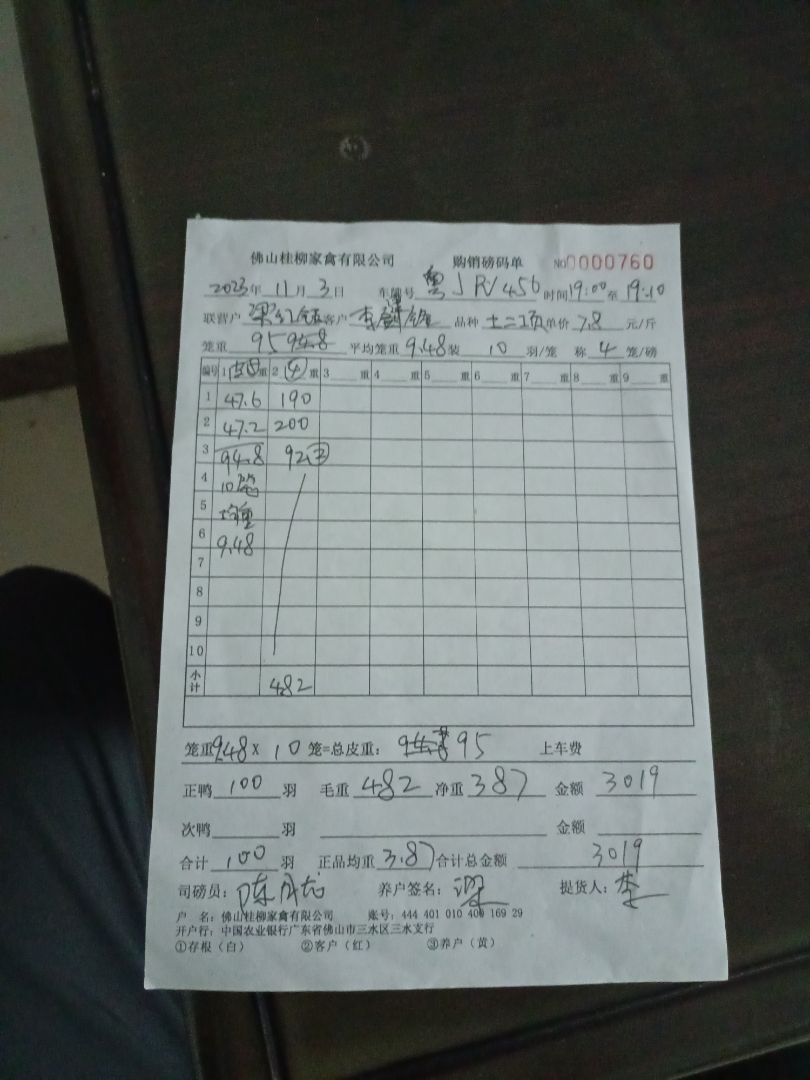 佛山桂柳家禽有限公司 购销磅码单 NO0000760
2023年 11月 3日 车牌号 粤J RV456 时间19:00至19:10
联营户 梁 客户 李 品种 土二 单价 7.8 元/斤
笼重 95 平均笼重 9.48 装 10 羽/笼 称 4 笼/磅
编号 1 重 2 ④ 重 3 重 4 重 5 重 6 重 7 重 8 重 9 重
1 47.6 190
2 47.2 200
3 94.8 92②
4 10笼
5 均重
6 9.48
7
8
9
10
小计 482
笼重9.48 X 10 笼=总皮重: 95 上车费
正鸭 100 羽 毛重 482 净重 387 金额 3019
次鸭 羽 金额
合计 100 羽 正品均重 3.87 合计总金额 3019
司磅员: 陈成龙 养户签名: 梁 提货人: 李
户 名: 佛山桂柳家禽有限公司 账号: 444 401 010 400 169 29
开户行: 中国农业银行广东省佛山市三水区三水支行
①存根（白） ②客户（红） ③养户（黄）